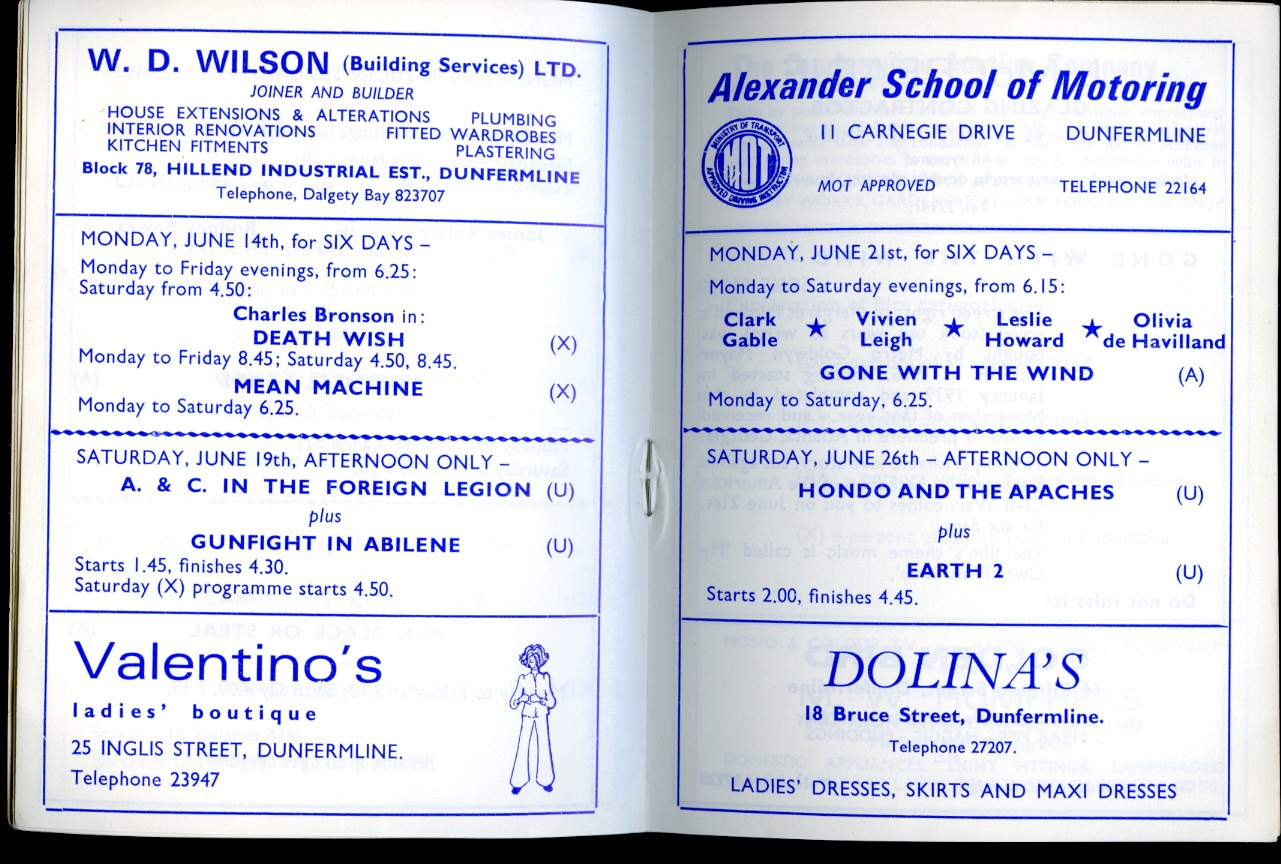 W. D. WILSON (Building Services) LTD.
JOINER AND BUILDER
HOUSE EXTENSIONS & ALTERATIONS PLUMBING
INTERIOR RENOVATIONS FITTED WARDROBES
KITCHEN FITMENTS PLASTERING
Block 78, HILLEND INDUSTRIAL EST., DUNFERMLINE
Telephone, Dalgety Bay 823707
MONDAY, JUNE 14th, for SIX DAYS –
Monday to Friday evenings, from 6.25:
Saturday from 4.50:
Charles Bronson in:
DEATH WISH (X)
Monday to Friday 8.45; Saturday 4.50, 8.45.
MEAN MACHINE (X)
Monday to Saturday 6.25.
SATURDAY, JUNE 19th, AFTERNOON ONLY –
A. & C. IN THE FOREIGN LEGION (U)
plus
GUNFIGHT IN ABILENE (U)
Starts 1.45, finishes 4.30.
Saturday (X) programme starts 4.50.
Valentino's
ladies' boutique
25 INGLIS STREET, DUNFERMLINE.
Telephone 23947
Alexander School of Motoring
MINISTRY OF TRANSPORT
MOT
APPROVED DRIVING INSTRUCTOR
11 CARNEGIE DRIVE DUNFERMLINE
MOT APPROVED TELEPHONE 22164
MONDAY, JUNE 21st, for SIX DAYS –
Monday to Saturday evenings, from 6.15:
Clark ★ Vivien ★ Leslie ★ Olivia
Gable Leigh Howard de Havilland
GONE WITH THE WIND (A)
Monday to Saturday, 6.25.
SATURDAY, JUNE 26th – AFTERNOON ONLY –
HONDO AND THE APACHES (U)
plus
EARTH 2 (U)
Starts 2.00, finishes 4.45.
DOLINA'S
18 Bruce Street, Dunfermline.
Telephone 27207.
LADIES' DRESSES, SKIRTS AND MAXI DRESSES